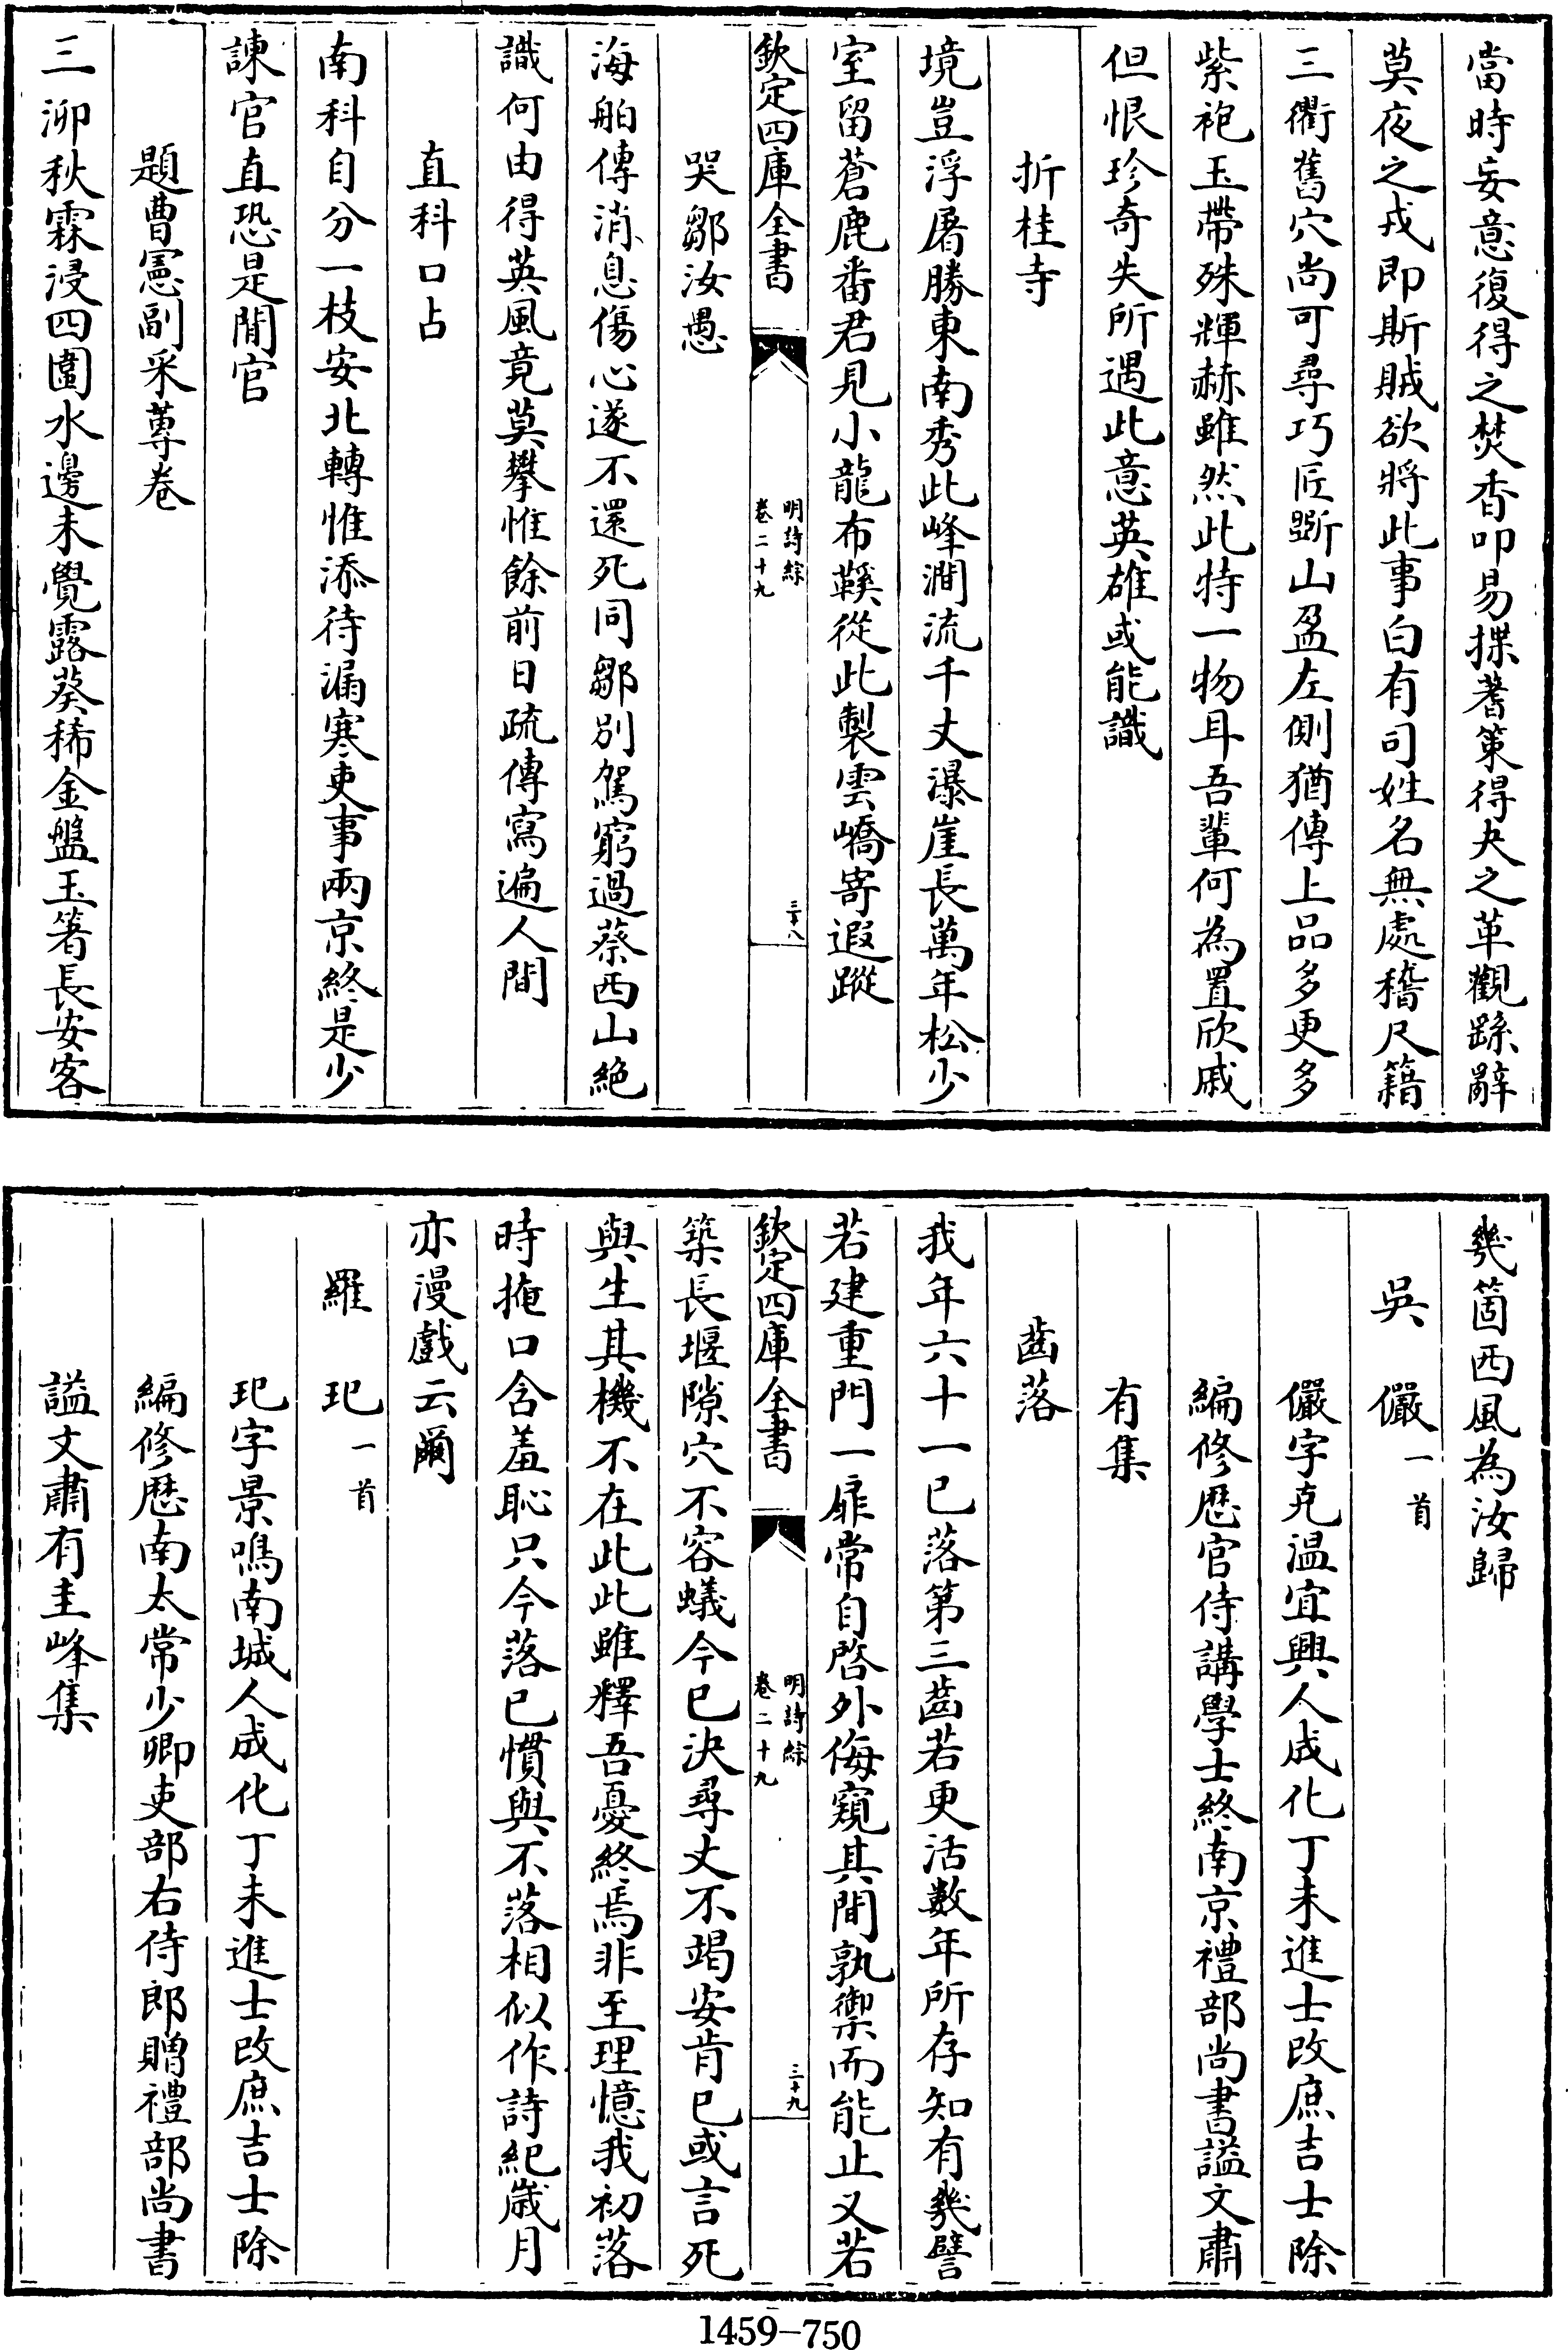 當時妄意復得之焚香叩易揲蓍策得夬之革觀繇辭
莫夜之戎即斯賊欲將此事白有司姓名無處稽尺籍
三衢舊穴尚可尋巧匠斲山盈左側猶傳上品多更多
紫袍玉帶殊輝赫雖然此特一物耳吾輩何為置欣戚
但恨珍奇失所遇此意英雄或能識
折桂寺
境豈浮屠勝東南秀此峰澗流千丈瀑崖長萬年松少
室留蒼鹿番君見小龍布鞵從此製雲嶠寄遐蹤
欽定四庫全書
明詩綜
卷二十九
三十八
哭鄒汝愚
海舶傳消息傷心遂不還死同鄒別駕窮過蔡西山絕
識何由得英風竟莫攀惟餘前日疏傳寫遍人間
直科口占
南科自分一枝安北轉惟添待漏寒吏事兩京終是少
諫官直恐是閒官
題曹憲副采蓴卷
三泖秋霖浸四圍水邊未覺露葵稀金盤玉箸長安客
幾箇西風為汝歸
吳儼一首
儼字克温宜興人成化丁未進士改庶吉士除
編修歷官侍講學士終南京禮部尚書諡文肅
有集
齒落
我年六十一已落第三齒若更活數年所存知有幾譬
若建重門一扉常自啓外侮窺其間孰禦而能止又若
欽定四庫全書
明詩綜
卷二十九
三十九
築長堰隙穴不容蟻今已決尋丈不竭安肯已或言死
與生其機不在此此雖釋吾憂終焉非至理憶我初落
時掩口含羞恥只今落已慣與不落相似作詩紀歲月
亦漫戲云爾
羅玘一首
玘字景鳴南城人成化丁未進士改庶吉士除
編修歷南太常少卿吏部右侍郎贈禮部尚書
諡文肅有圭峰集
1459-750